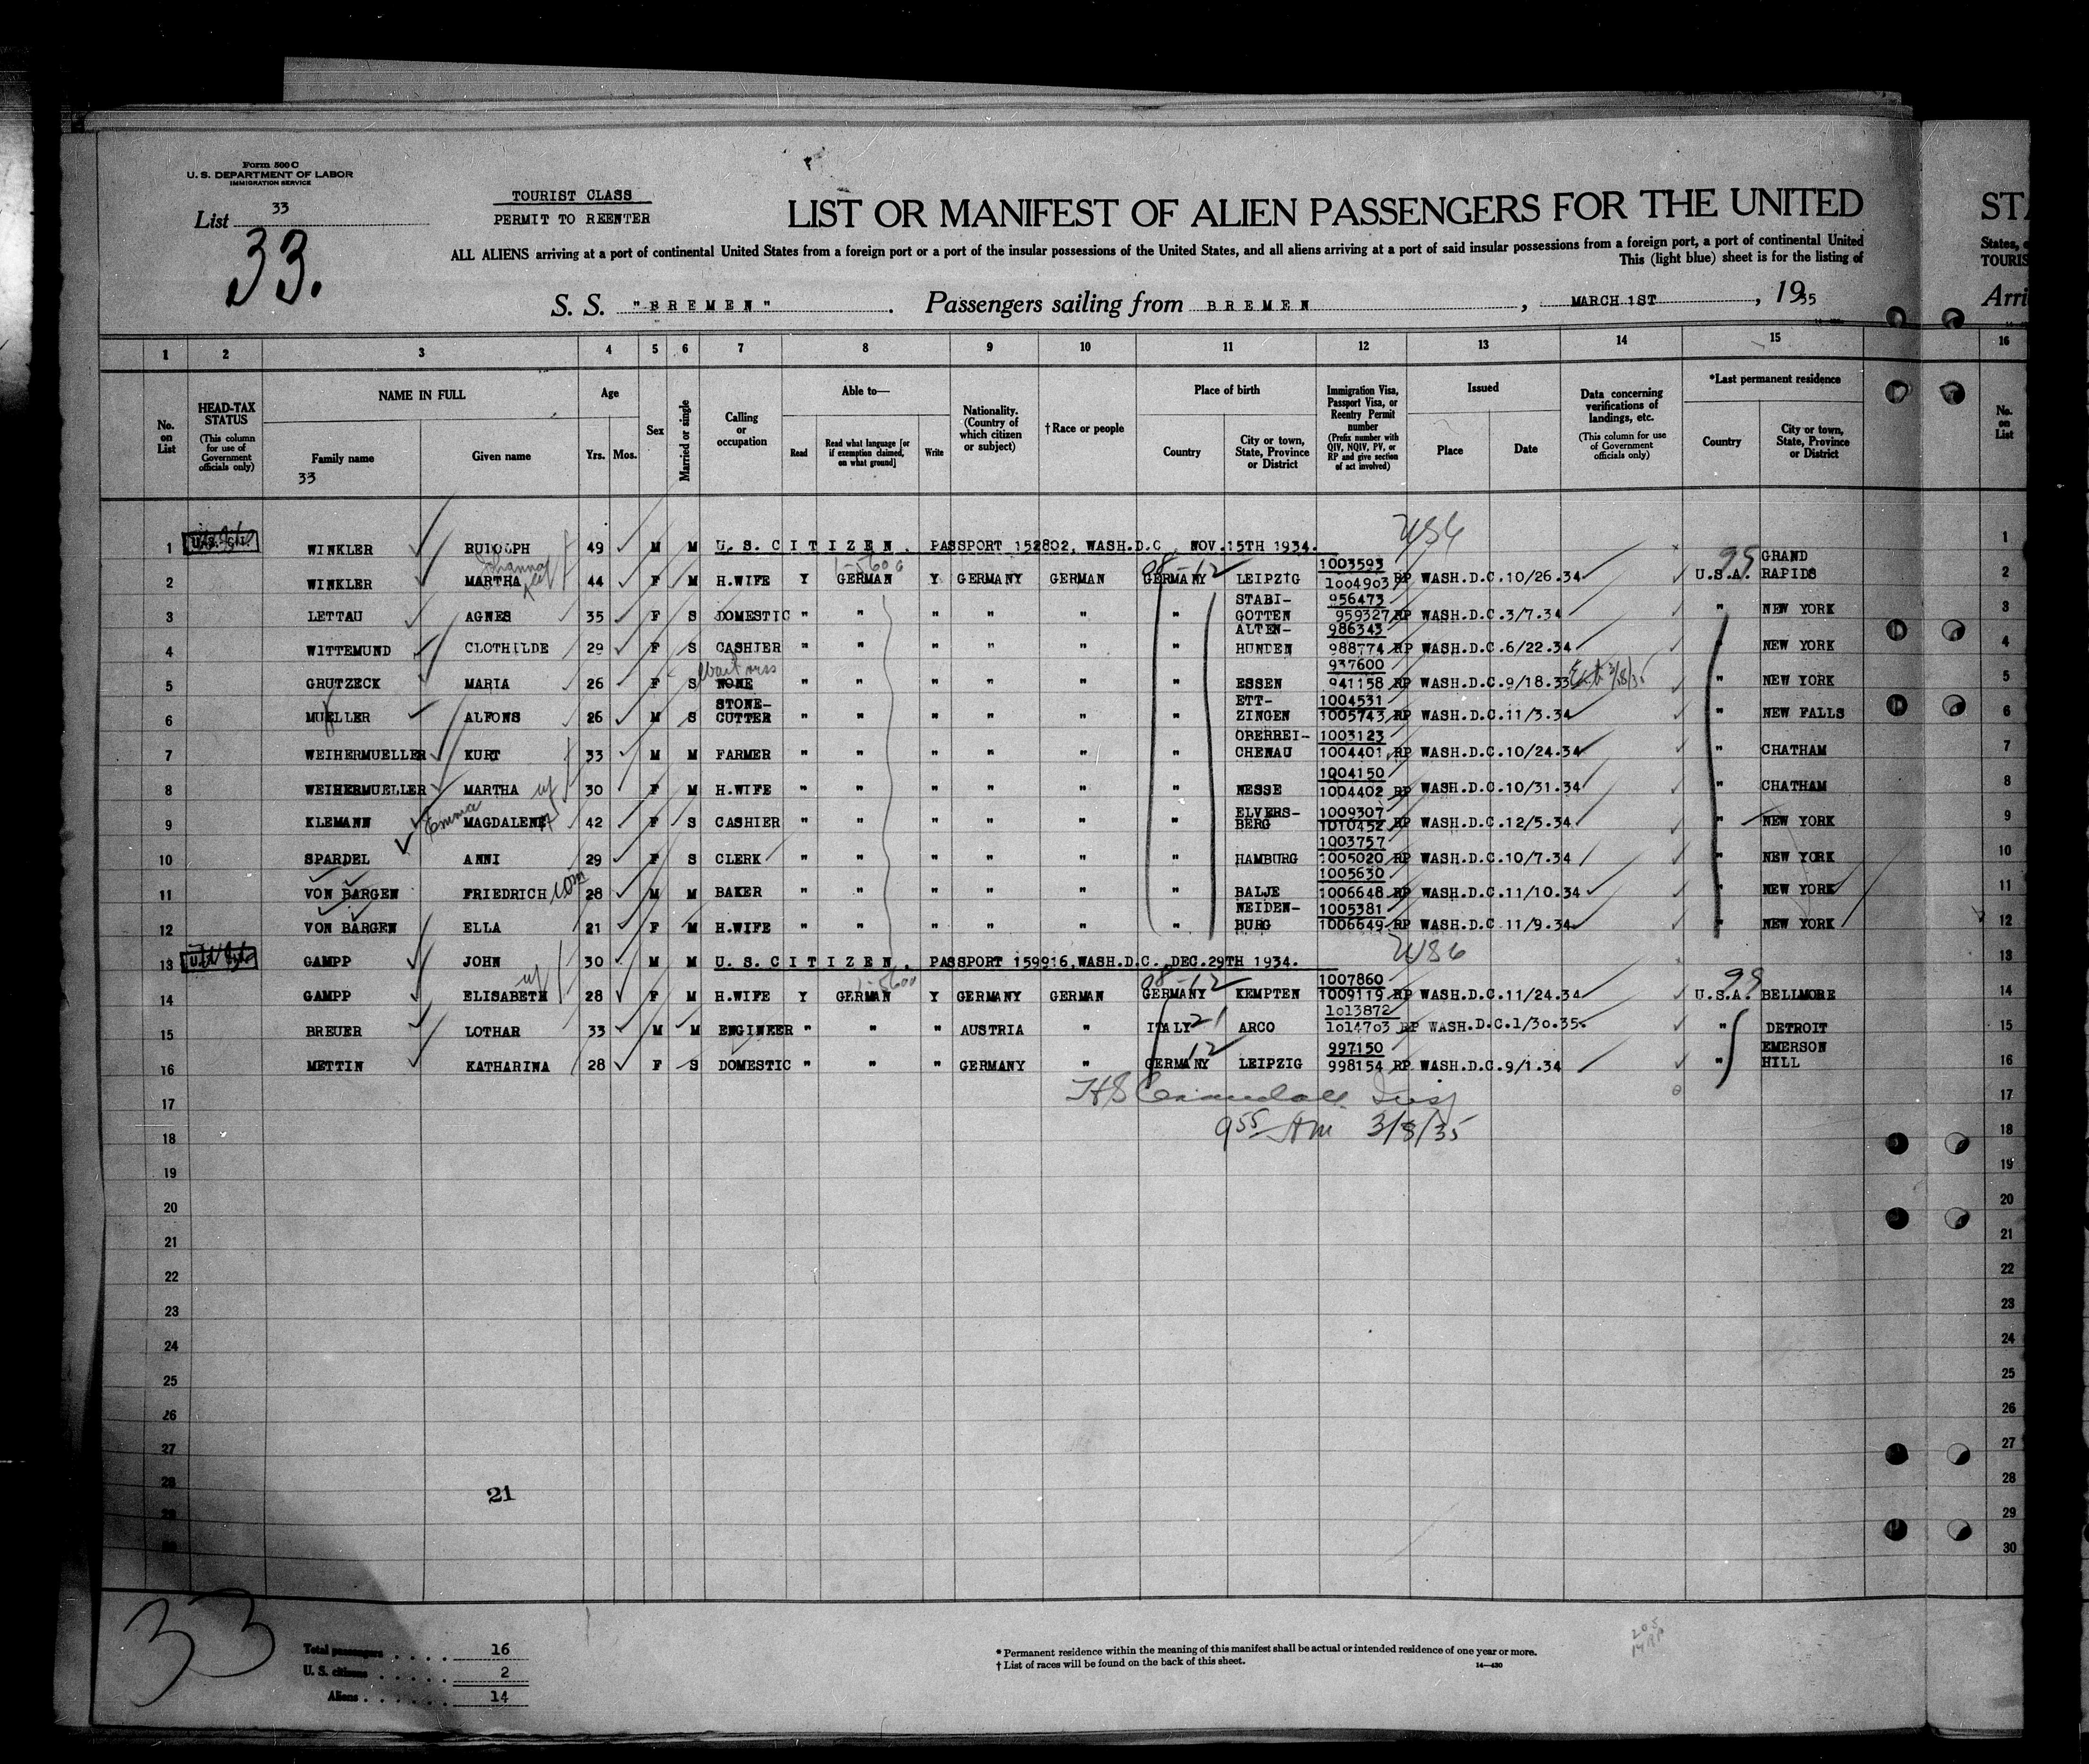 Form 500 C
U. S. DEPARTMENT OF LABOR
IMMIGRATION SERVICE
List 33
33.
TOURIST CLASS
PERMIT TO REENTER
LIST OR MANIFEST OF ALIEN PASSENGERS FOR THE UNITED
ALL ALIENS arriving at a port of continental United States from a foreign port or a port of the insular possessions of the United States, and all aliens arriving at a port of said insular possessions from a foreign port, a port of continental United
This (light blue) sheet is for the listing of
S. S. "BREMEN". Passengers sailing from BREMEN, MARCH 1ST, 1935
STA
States, 
TOURIS
Arri
1 2 3 4 5 6 7 8 9 10 11 12 13 14 15 16
No. on List
HEAD-TAX STATUS (This column for use of Government officials only)
NAME IN FULL
Family name Given name
33
Age Yrs. Mos.
Sex
Married or single
Calling or occupation
Able to—
Read Read what language [or if exemption claimed, on what ground] Write
Nationality. (Country of which citizen or subject)
†Race or people
Place of birth
Country City or town, State, Province or District
Immigration Visa, Passport Visa, or Reentry Permit number (Prefix number with QIV, NQIV, PV, or RP and give section of act involved)
Issued
Place Date
Data concerning verifications of landings, etc. (This column for use of Government officials only)
*Last permanent residence
Country City or town, State, Province or District
No. on List
1 U.S. CIT. WINKLER RUDOLPH 49 M M U.S. CITIZEN. PASSPORT 152802, WASH.D.C. NOV.15TH 1934. USC 1
2 WINKLER MARTHA Johanna wf 44 F M H.WIFE Y GERMAN Y GERMANY GERMAN GERMANY LEIPZIG 1003593 1004903 RP WASH.D.C.10/26.34 U.S.A. 99 GRAND RAPIDS 2
3 LETTAU AGNES 35 F S DOMESTIC " " " " " " STABI-GOTTEN 956473 959327 RP WASH.D.C.3/7.34 " NEW YORK 3
4 WITTEMUND CLOTHILDE 29 F S CASHIER " " " " " " ALTEN-HUNDEN 986343 988774 RP WASH.D.C.6/22.34 " NEW YORK 4
5 GRUTZECK MARIA 26 F S NONE Waitress " " " " " " ESSEN 937600 941158 RP WASH.D.C.9/18.33 Ext 3/8/35 " NEW YORK 5
6 MUELLER ALFONS 26 M S STONE-CUTTER " " " " " " ETT-ZINGEN 1004531 1005743 RP WASH.D.C.11/3.34 " NEW FALLS 6
7 WEIHERMUELLER KURT 33 M M FARMER " " " " " " OBERREI-CHENAU 1003123 1004401 RP WASH.D.C.10/24.34 " CHATHAM 7
8 WEIHERMUELLER MARTHA wf 30 F M H.WIFE " " " " " " NESSE 1004150 1004402 RP WASH.D.C.10/31.34 " CHATHAM 8
9 KLEMANN Emma MAGDALENE 42 F S CASHIER " " " " " " ELVERS-BERG 1009307 1010452 RP WASH.D.C.12/5.34 " NEW YORK 9
10 SPARDEL ANNI 29 F S CLERK " " " " " " HAMBURG 1003757 1005020 RP WASH.D.C.10/7.34 " NEW YORK 10
11 VON BARGEN FRIEDRICH Wm 28 M M BAKER " " " " " " BALJE 1005630 1006648 RP WASH.D.C.11/10.34 " NEW YORK 11
12 VON BARGEN ELLA 21 F M H.WIFE " " " " " " NEIDEN-BURG 1005381 1006649 RP WASH.D.C.11/9.34 " NEW YORK 12
13 GAMPP JOHN 30 M M U.S. CITIZEN. PASSPORT 159916, WASH.D.C. DEC.29TH 1934. USC 13
14 GAMPP ELISABETH wf 28 F M H.WIFE Y GERMAN Y GERMANY GERMAN GERMANY KEMPTEN 1007860 1009119 RP WASH.D.C.11/24.34 U.S.A. 99 BELLMORE 14
15 BREUER LOTHAR 33 M M ENGINEER " " " AUSTRIA " ITALY 21 ARCO 1013872 1014703 RP WASH.D.C.1/30.35. " DETROIT 15
16 METTIN KATHARINA 28 F S DOMESTIC " " " GERMANY " GERMANY 12 LEIPZIG 997150 998154 RP WASH.D.C.9/1.34 " EMERSON HILL 16
17 17
18 9 55 Am 3/8/35 18
19 19
20 20
21 21
22 22
23 23
24 24
25 25
26 26
27 27
28 21 28
29 29
30 30
33
Total passengers . . . . 16
U. S. citizens . . . . . 2
Aliens . . . . . . 14
* Permanent residence within the meaning of this manifest shall be actual or intended residence of one year or more.
† List of races will be found on the back of this sheet. 14—430